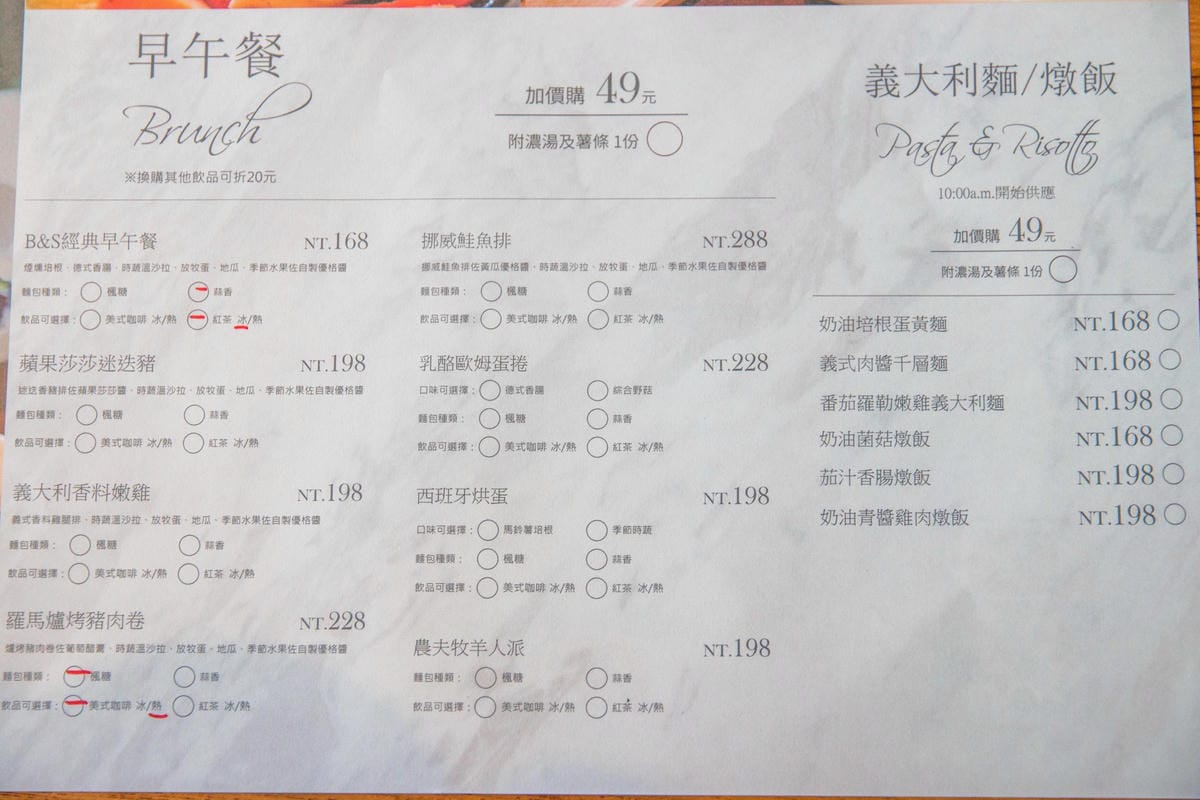 早午餐
Brunch
※換購其他飲品可折20元
加價購 49元
附濃湯及薯條 1份
B&S經典早午餐 NT.168
煙燻培根、德式香腸、時蔬溫沙拉、放牧蛋、地瓜、季節水果佐自製優格醬
麵包種類： 楓糖 蒜香
飲品可選擇： 美式咖啡 冰/熱 紅茶 冰/熱
蘋果莎莎迷迭豬 NT.198
迷迭香豬排佐蘋果莎莎醬、時蔬溫沙拉、放牧蛋、地瓜、季節水果佐自製優格醬
麵包種類： 楓糖 蒜香
飲品可選擇： 美式咖啡 冰/熱 紅茶 冰/熱
義大利香料嫩雞 NT.198
義式香料雞腿排、時蔬溫沙拉、放牧蛋、地瓜、季節水果佐自製優格醬
麵包種類： 楓糖 蒜香
飲品可選擇： 美式咖啡 冰/熱 紅茶 冰/熱
羅馬爐烤豬肉卷 NT.228
爐烤豬肉卷佐葡萄醋膏、時蔬溫沙拉、放牧蛋、地瓜、季節水果佐自製優格醬
麵包種類： 楓糖 蒜香
飲品可選擇： 美式咖啡 冰/熱 紅茶 冰/熱
挪威鮭魚排 NT.288
挪威鮭魚排佐黃瓜優格醬、時蔬溫沙拉、放牧蛋、地瓜、季節水果佐自製優格醬
麵包種類： 楓糖 蒜香
飲品可選擇： 美式咖啡 冰/熱 紅茶 冰/熱
乳酪歐姆蛋捲 NT.228
口味可選擇： 德式香腸 綜合野菇
麵包種類： 楓糖 蒜香
飲品可選擇： 美式咖啡 冰/熱 紅茶 冰/熱
西班牙烘蛋 NT.198
口味可選擇： 馬鈴薯培根 季節時蔬
麵包種類： 楓糖 蒜香
飲品可選擇： 美式咖啡 冰/熱 紅茶 冰/熱
農夫牧羊人派 NT.198
麵包種類： 楓糖 蒜香
飲品可選擇： 美式咖啡 冰/熱 紅茶 冰/熱
義大利麵/燉飯
Pasta & Risotto
10:00a.m.開始供應
加價購 49元
附濃湯及薯條 1份
奶油培根蛋黃麵 NT.168
義式肉醬千層麵 NT.168
番茄羅勒嫩雞義大利麵 NT.198
奶油菌菇燉飯 NT.168
茄汁香腸燉飯 NT.198
奶油青醬雞肉燉飯 NT.198